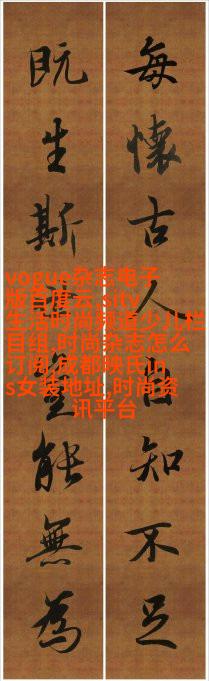 每懷古人自知不足
既生斯能無為
vogue杂志电子
版百度云,sitv
生活时尚频道少儿栏
目组,时尚杂志怎么
订阅,成都映氏in
s女装地址,时尚资
讯平台